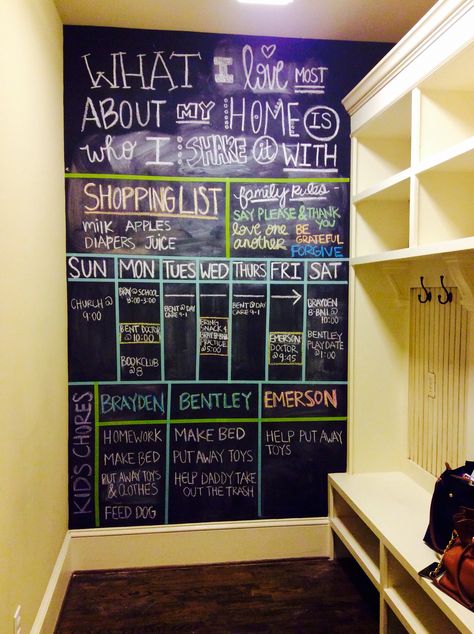 WHAT I love MOST
ABOUT MY HOME IS
who I SHAKE it WITH
SHOPPING LIST
milk APPLES
DIAPERS JUICE
family RULES
SAY PLEASE & THANK YOU
love one another
BE GRATEFUL
FORGIVE
SUN MON TUES WED THURS FRI SAT
CHURCH @ 9:00
@ SCHOOL 9:00-3:00
BENT DOCTOR @ 10:00
BOOKCLUB @ 8
BENT @ DAY CARE 9-1
BRING SNACK 4
PRACTICE @ 5:00
BENT @ DAY CARE 9-1
EMERSON DOCTOR @ 9:45
BRAYDEN
@ 10:00
BENTLEY PLAYDATE @ 1:00
KID'S CHORES
BRAYDEN BENTLEY EMERSON
HOMEWORK
MAKE BED
PUT AWAY TOYS & CLOTHES
FEED DOG
MAKE BED
PUT AWAY TOYS
HELP DADDY TAKE OUT THE TRASH
HELP PUT AWAY TOYS